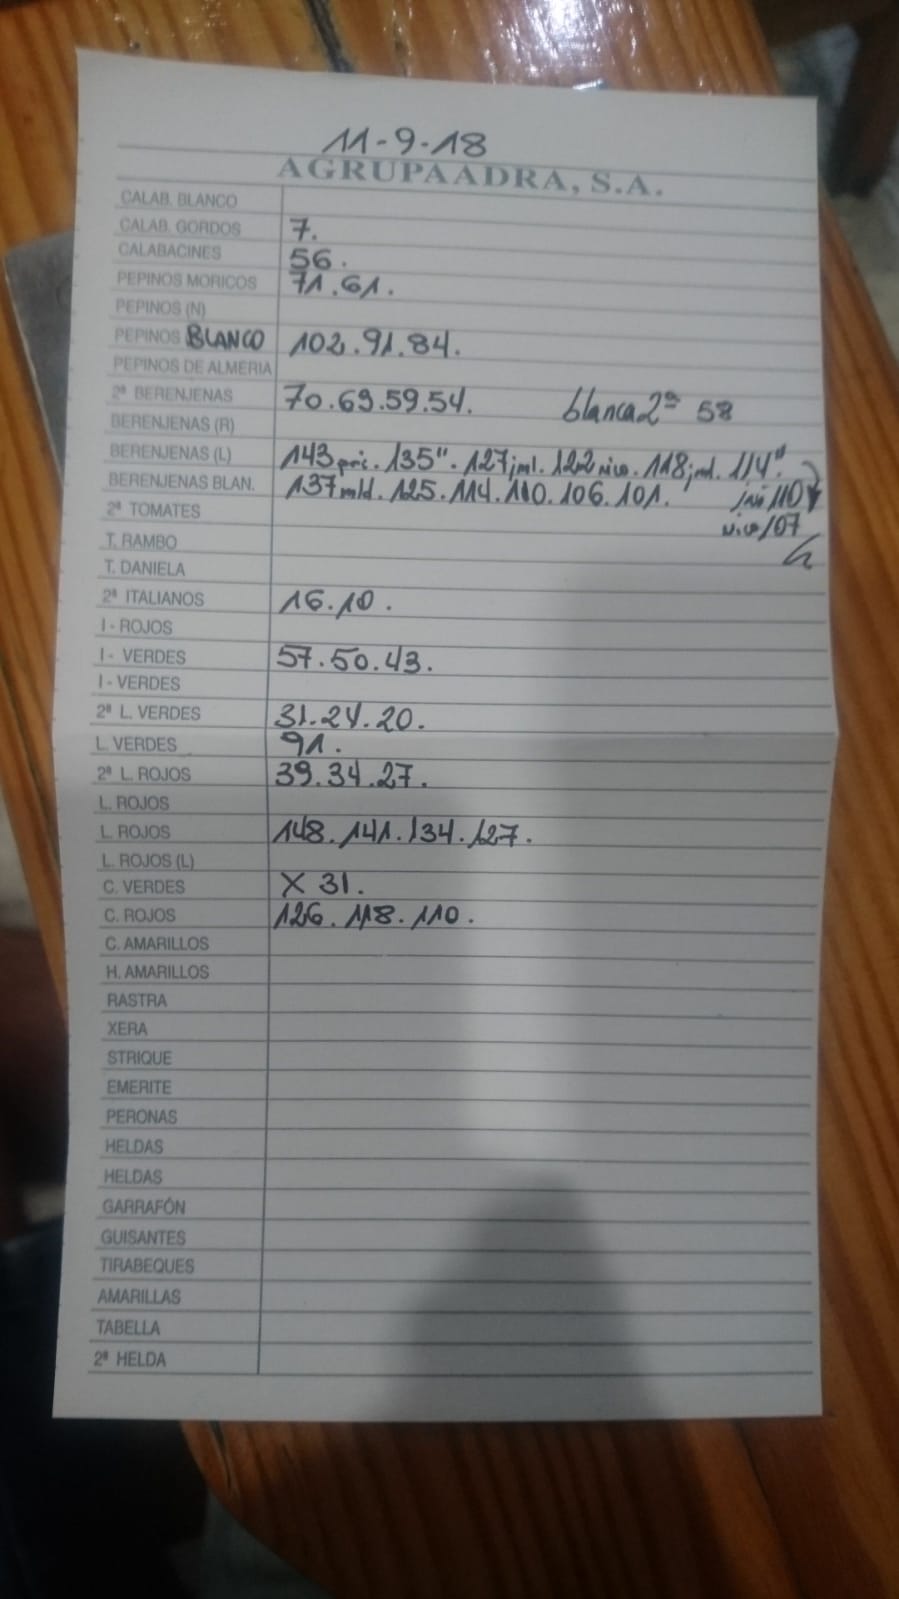 11-9-18
AGRUPAADRA, S.A.
CALAB. BLANCO
CALAB. GORDOS 7.
CALABACINES 56.
PEPINOS MORICOS 71.61.
PEPINOS (N)
PEPINOS BLANCO 102.91.84.
PEPINOS DE ALMERIA
2ª BERENJENAS 70.69.59.54. blanca 2ª 58
BERENJENAS (R)
BERENJENAS (L) 143 pri. 135". 127 jml. 122 nico. 118 jml. 114".
BERENJENAS BLAN. 137 mld. 125. 114. 110. 106. 101. 110
2ª TOMATES nico 107
T. RAMBO
T. DANIELA
2ª ITALIANOS 16.10.
I - ROJOS
I - VERDES 57.50.43.
I - VERDES
2ª L. VERDES 31.24.20.
L. VERDES 91.
2ª L. ROJOS 39.34.27.
L. ROJOS
L. ROJOS 148.141.134.127.
L. ROJOS (L)
C. VERDES X 31.
C. ROJOS 126.118.110.
C. AMARILLOS
H. AMARILLOS
RASTRA
XERA
STRIQUE
EMERITE
PERONAS
HELDAS
HELDAS
GARRAFÓN
GUISANTES
TIRABEQUES
AMARILLAS
TABELLA
2ª HELDA